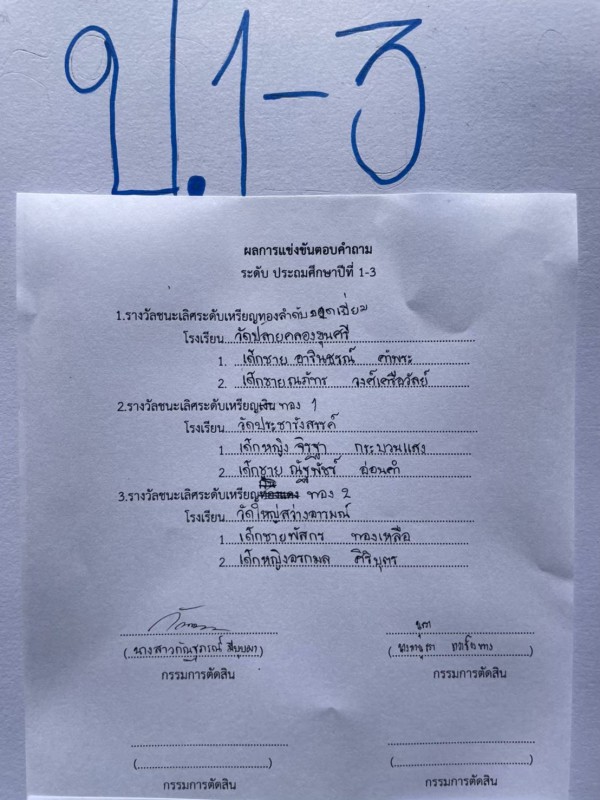 ป.1-3
ผลการแข่งขันตอบคำถาม
ระดับ ประถมศึกษาปีที่ 1-3
1.รางวัลชนะเลิศระดับเหรียญทองลำดับยอดเยี่ยม
โรงเรียน วัดปลายคลองขุนศรี
1. เด็กชาย อารินชรณ์
2. เด็กชายณภัทร วงศ์เครือวัลย์
2.รางวัลชนะเลิศระดับเหรียญเงิน ทอง 1
โรงเรียน วัดประชารังสรรค์
1 เด็กหญิง จิรฐา กระบวนแสง
2. เด็กชาย ณัฐพัชร์ อ่อนคำ
3.รางวัลชนะเลิศระดับเหรียญทองแดง ทอง 2
โรงเรียน วัดใหญ่สว่างอารมณ์
1 เด็กชายพัสกร ทองเหลือ
2. เด็กหญิงอรกมล ศิริบุตร
(นางสาวกัณฐภรณ์)
กรรมการตัดสิน
กรรมการตัดสิน
(....................)
(....................)
กรรมการตัดสิน
กรรมการตัดสิน